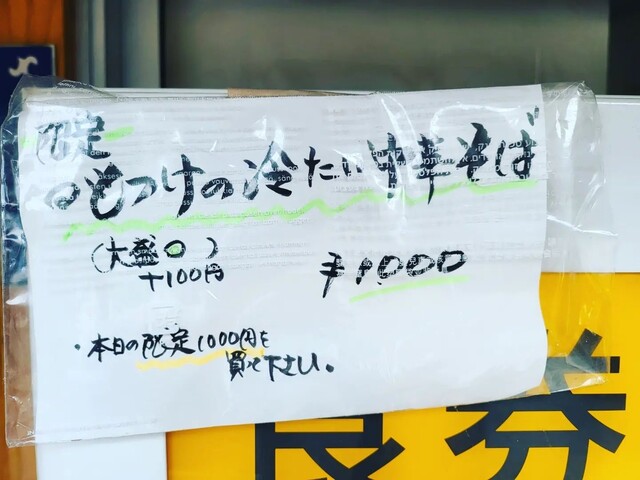 限定
のどつけの冷たい中華そば
(大盛○)
+100円
¥1,000
・本日の限定1000円を
買って下さい。
食券